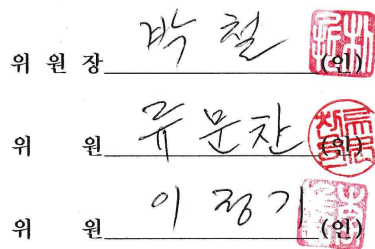 위 원 장 박 철 (인)
위 원 류 문 찬 (인)
위 원 이 정 기 (인)